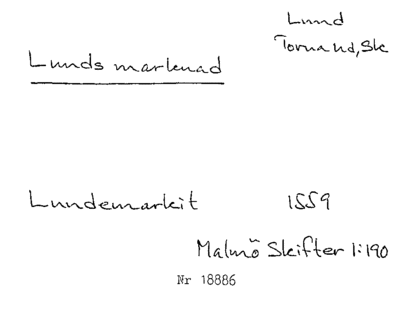 Lund
Torna hd, Sk
Lunds marknad
Lundemarkit 1559
Malmö Skifter 1:190
Nr 18886